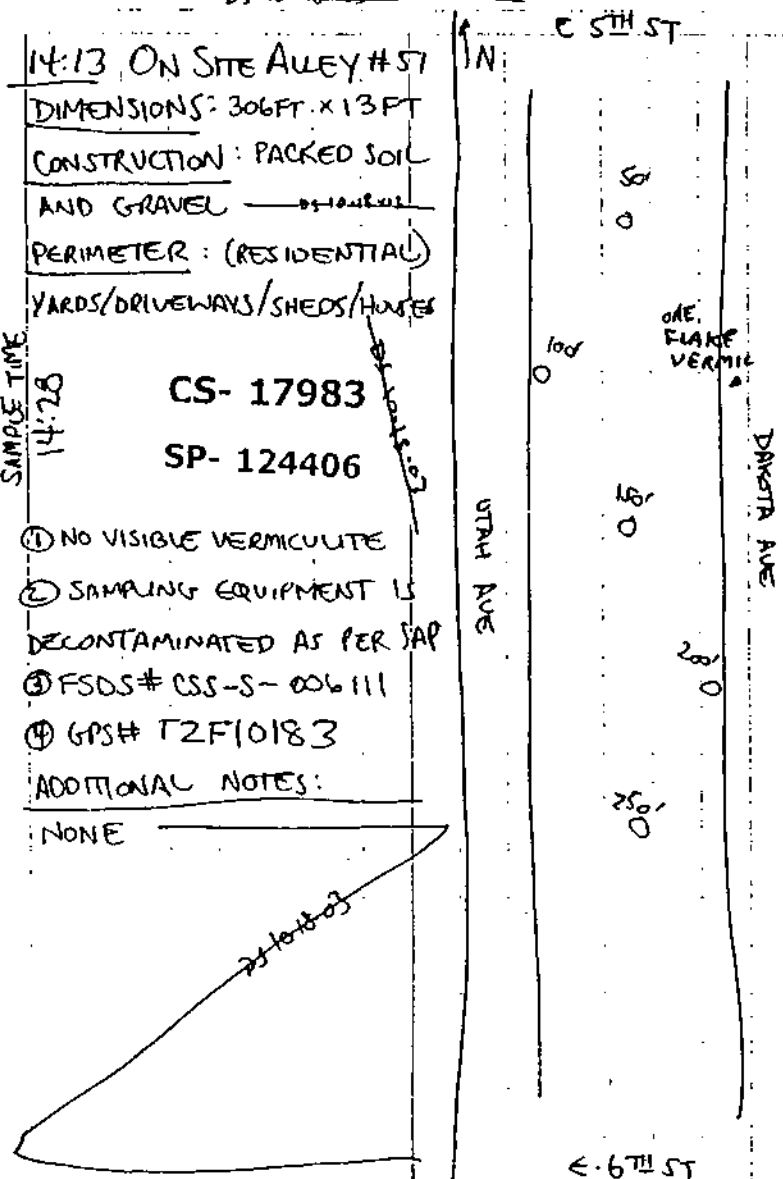 14:13 ON SITE ALLEY #51
DIMENSIONS: 306FT. X 13FT
CONSTRUCTION: PACKED SOIL
AND GRAVEL
PERIMETER: (RESIDENTIAL)
YARDS/DRIVEWAYS/SHEDS/HOUSES
DS 10.18.03
SAMPLE TIME
14:28
CS- 17983
SP- 124406
① NO VISIBLE VERMICULITE
② SAMPLING EQUIPMENT IS
DECONTAMINATED AS PER SAP
③ FSDS# CSS-S-006111
④ GPS# T2F10183
ADDITIONAL NOTES:
NONE
DS 10.18.03
E 5TH ST
N
50'
ONE
FLAKE
VERMIC
100'
150'
UTAH AVE
DAKOTA AVE
200'
250'
E. 6TH ST